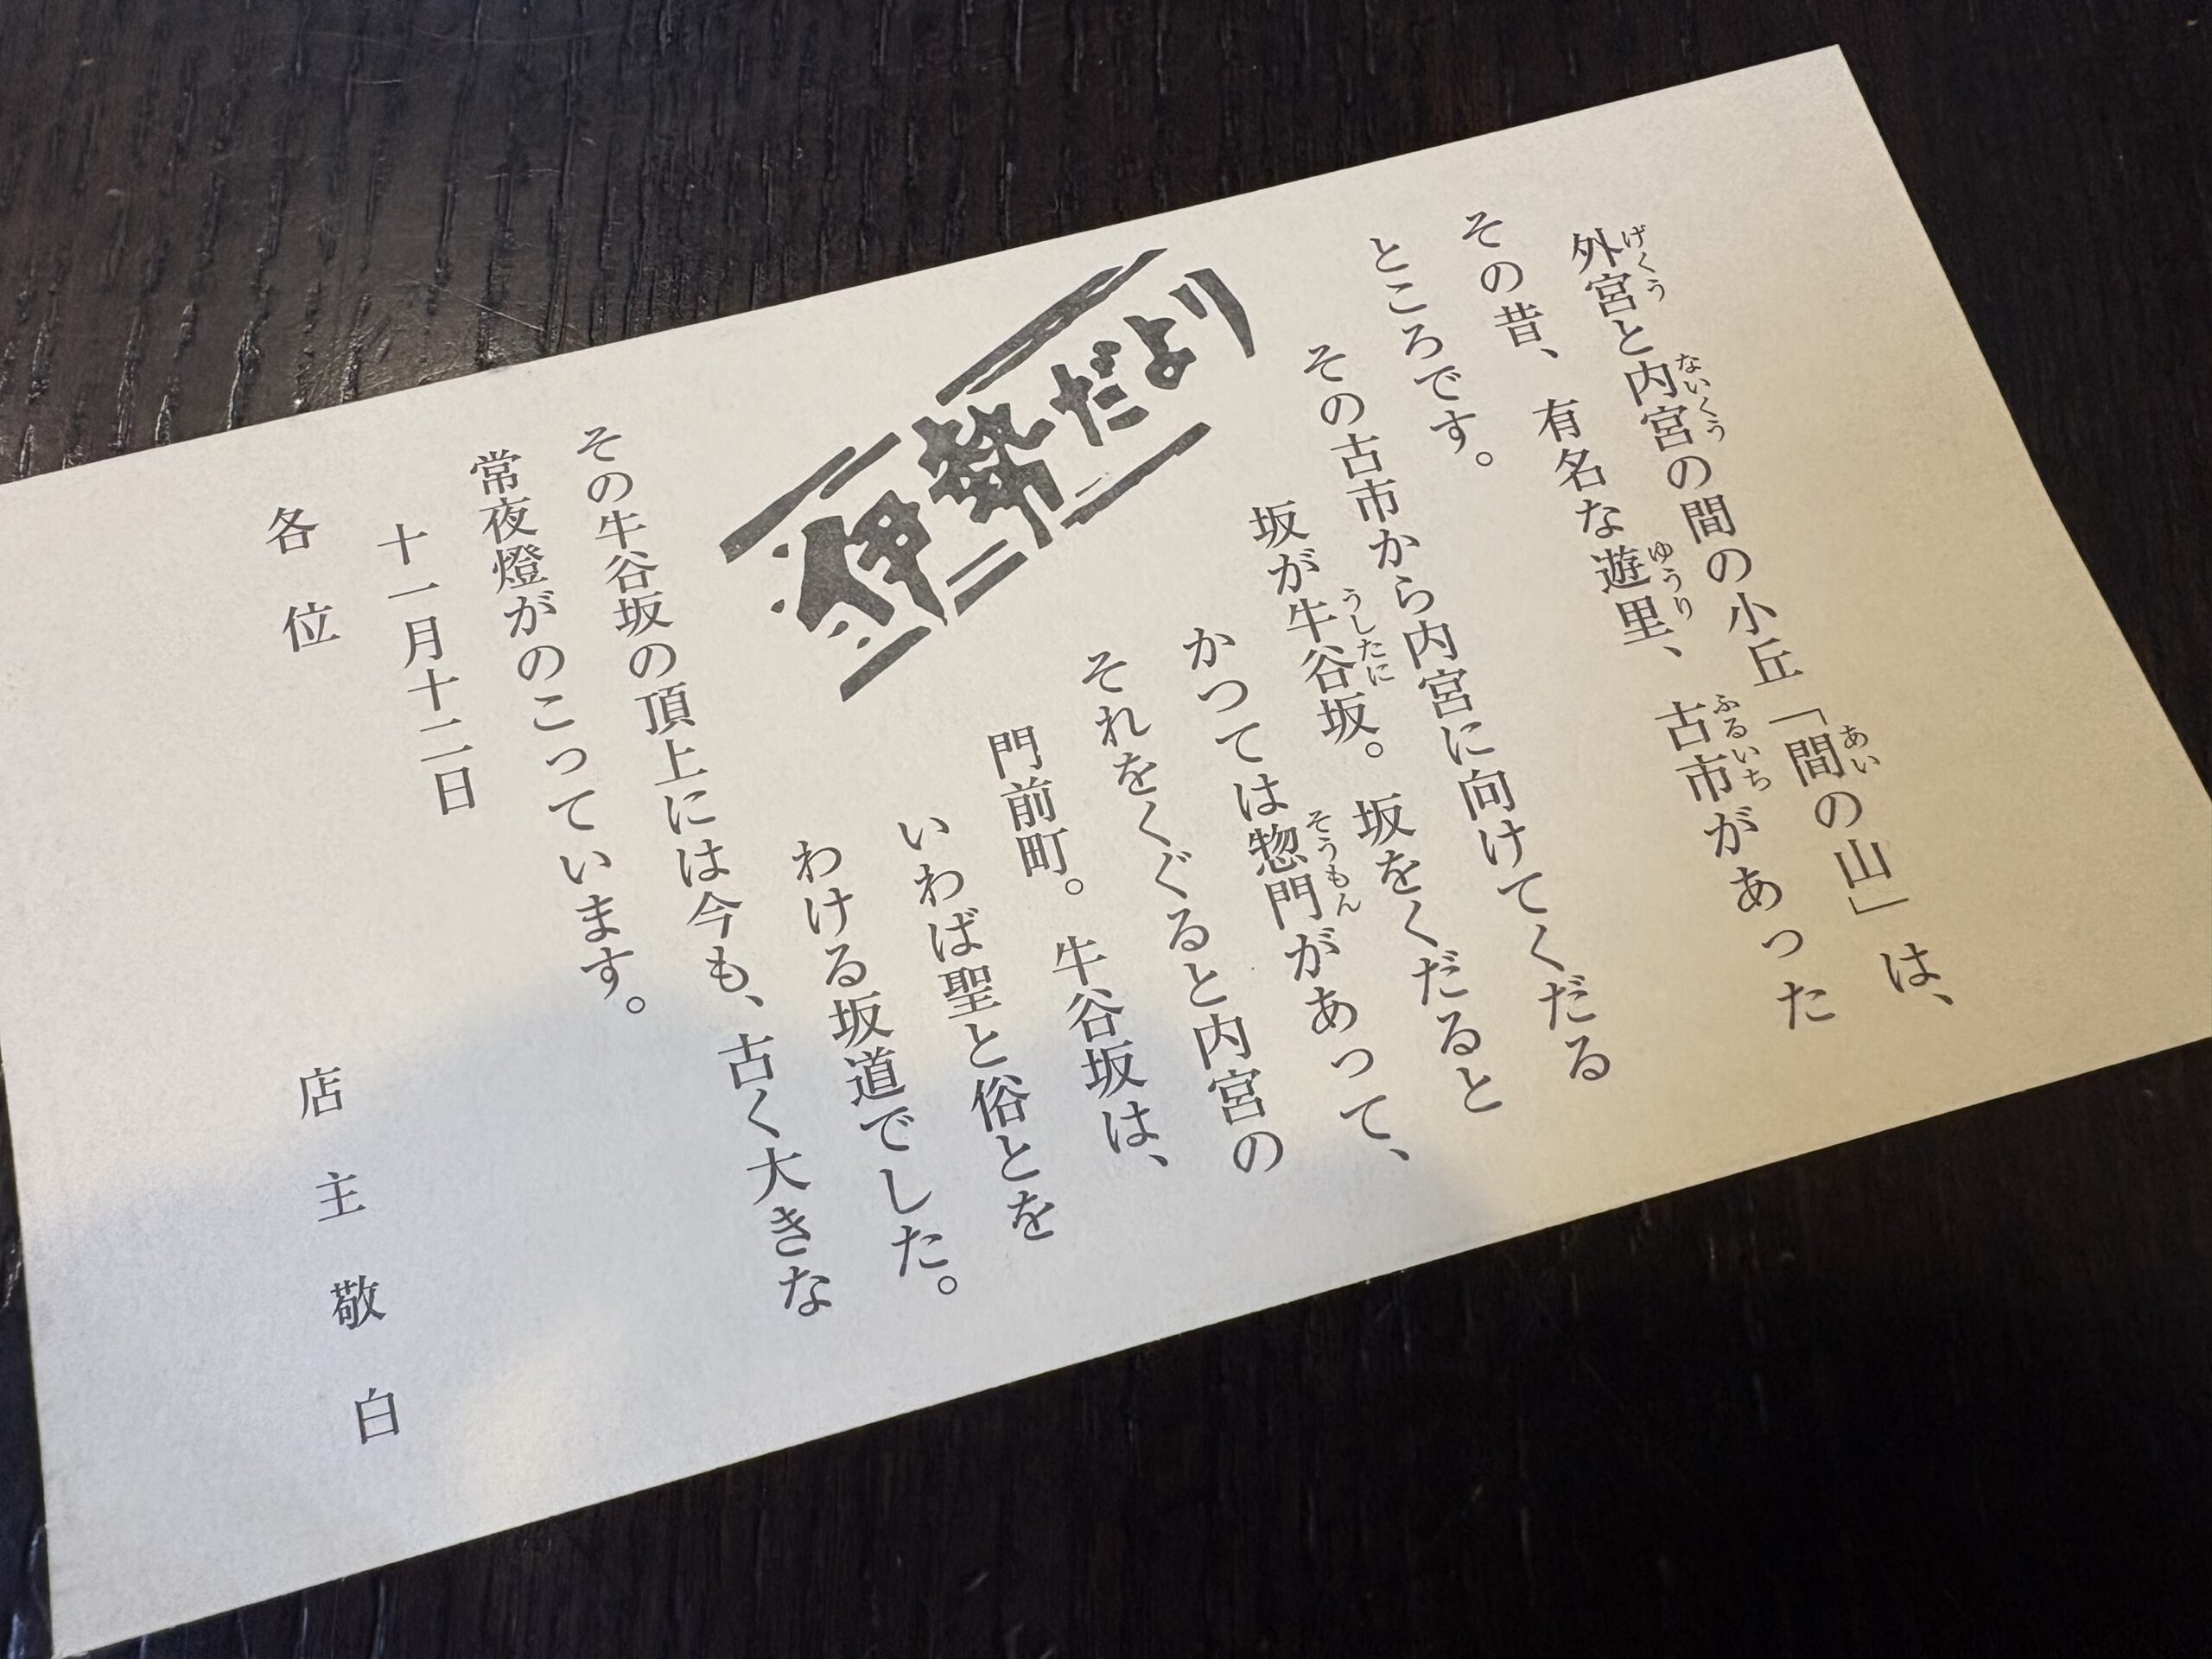 外宮と内宮の間の小丘「間の山」は、
その昔、有名な遊里、古市があった
ところです。
その古市から内宮に向けてくだる
坂が牛谷坂。坂をくだると
かつては惣門があって、
それをくぐると内宮の
門前町。牛谷坂は、
いわば聖と俗とを
わける坂道でした。
伊勢だより
その牛谷坂の頂上には今も、古く大きな
常夜燈がのこっています。
十一月十二日
各位
店主敬白